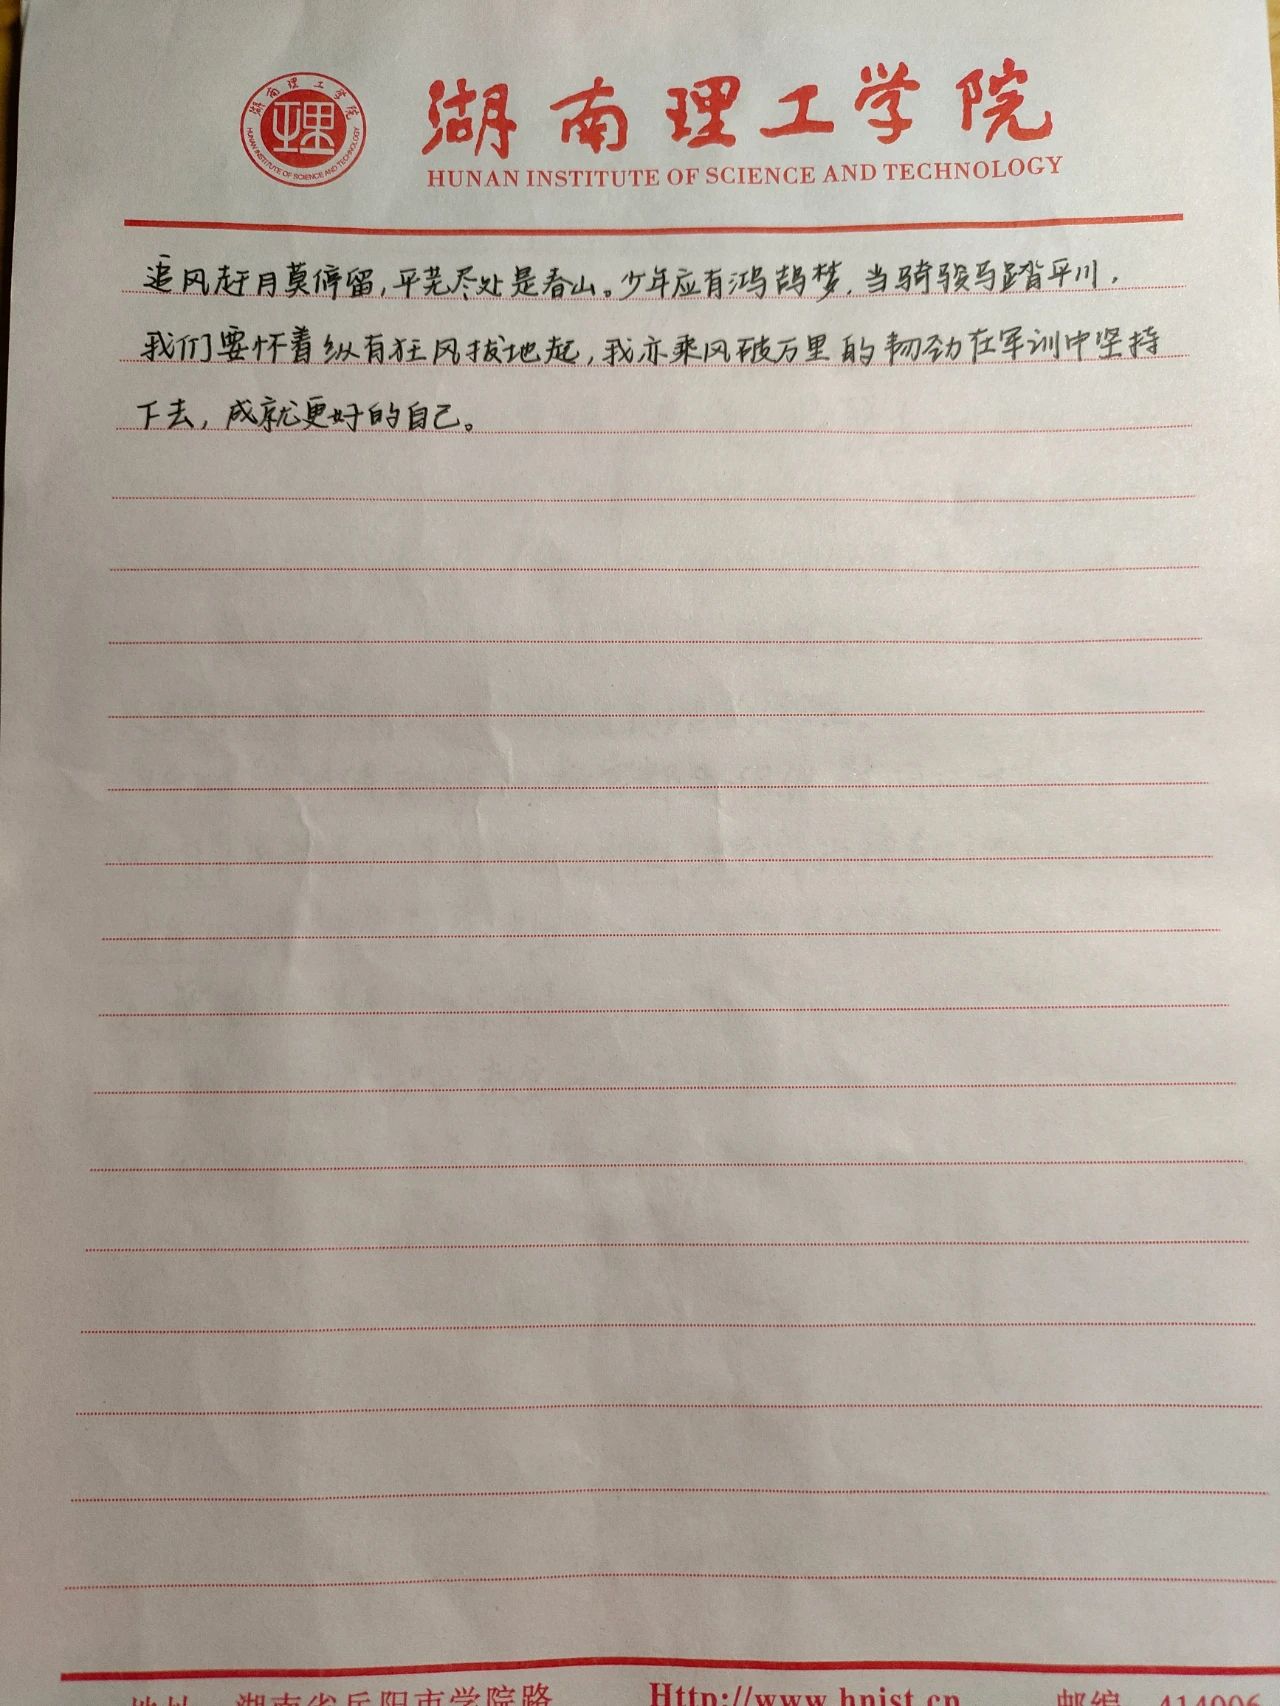 湖南理工学院
HUNAN INSTITUTE OF SCIENCE AND TECHNOLOGY
理
湖南理工学院
HUNAN INSTITUTE OF SCIENCE AND TECHNOLOGY
追风赶月莫停留,平芜尽处是春山。少年应有鸿鹄梦,当骑骏马踏平川,
我们要怀着纵有狂风拔地起,我亦乘风破万里的韧劲在军训中坚持
下去,成就更好的自己。
地址 湖南省岳阳市学院路 Http://www.hnist.cn 邮编 414006